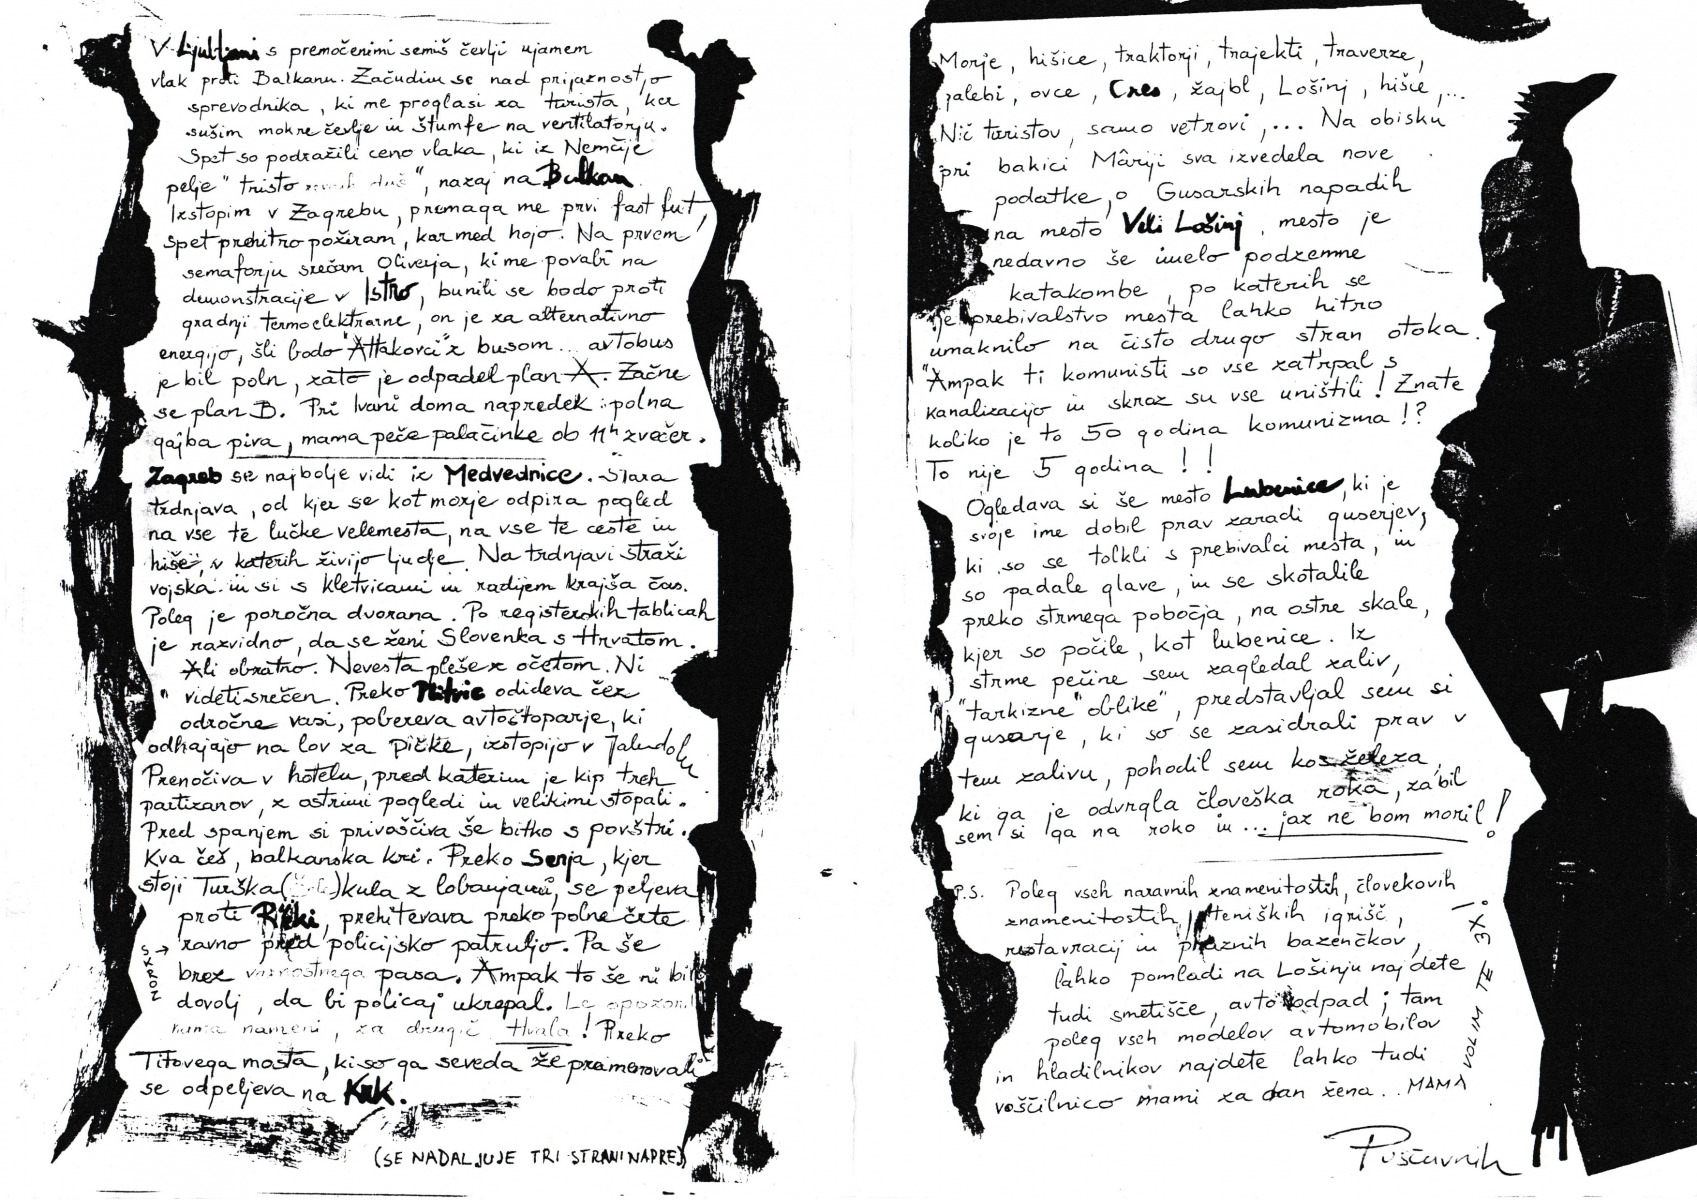 V Ljubljani s premočenimi semiš čevlji ujamem
vlak proti Balkanu. Začudim se nad prijaznostjo
sprevodnika, ki me proglasi za turista, ker
sušim mokre čevlje in štumfe na ventilatorju.
Spet so podražili ceno vlaka, ki iz Nemčije
pelje "tristo duš", nazaj na Balkan.
Izstopim v Zagrebu, premaga me prvi fast fut,
spet prehitro požiram, kar med hojo. Na prvem
semaforju srečam Oliverja, ki me povabi na
demonstracije v Istro, bunili se bodo proti
gradnji termoelektrarne, on je za alternativno
energijo, šli bodo "Attakovci" z busom... avtobus
je bil poln, zato je odpadel plan A. Začne
se plan B. Pri Ivani doma napredek: polna
gajba piva, mama peče palačinke ob 11h zvečer.
Zagreb se najbolje vidi iz Medvednice. Stara
trdnjava, od kjer se kot morje odpira pogled
na vse te lučke velemesta, na vse te ceste in
hiše, v katerih živijo ljudje. Na trdnjavi straži
vojska in si s kletvicami in radijem krajša čas.
Poleg je poročna dvorana. Po registerskih tablicah
je razvidno, da se ženi Slovenka s Hrvatom.
Ali obratno. Nevesta pleše z očetom. Ni
videti srečen. Preko Plitvic odideva čez
odročne vasi, pobereva avtoštoparje, ki
odhajajo na lov za pičke, izstopijo v Jaludolu
Prenočiva v hotelu, pred katerim je kip treh
partizanov, z ostrimi pogledi in velikimi stopali.
Pred spanjem si privoščiva še bitko s povštri.
Kva češ, balkanska kri. Preko Senja, kjer
stoji Turška ( ) kula z lobanjami, se peljeva
proti Rijeki, prehitevava preko polne črte
SKRON → ravno pred policijsko patruljo. Pa še
brez varnostnega pasa. Ampak to še ni bilo
dovolj, da bi policaj ukrepal. Le opozori
nama nameni, za drugič. Hvala! Preko
Titovega mosta, ki so ga seveda že preimenovali
se odpeljeva na Krk.
(SE NADALJUJE TRI STRANI NAPREJ)
Morje, hišice, traktorji, trajekti, traverze,
galebi, ovce, Cres, žajbl, Lošinj, hišice,...
Nič turistov, samo vetrovi,... Na obisku
pri bakici Mâriji sva izvedela nove
podatke o Gusarskih napadih
na mesto Veli Lošinj, mesto je
nedavno še imelo podzemne
katakombe, po katerih se
je prebivalstvo mesta lahko hitro
umaknilo na čisto drugo stran otoka.
"Ampak ti komunisti so vse zatrpal s
kanalizacijo in skroz su vse uništili! Znate
koliko je to 50 godina komunizma!?
To nije 5 godina!!
Ogledava si še mesto Lubenice, ki je
svoje ime dobil prav zaradi gusarjev,
ki so se tolkli s prebivalci mesta, in
so padale glave, in se skotalile
preko strmega pobočja, na ostre skale,
kjer so počile, kot lubenice. Iz
strme pečine sem zagledal zaliv,
"tarkizne" oblike", predstavljal sem si
gusarje, ki so se zasidrali prav v
tem zalivu, pohodil sem kos železa,
ki ga je odvrgla človeška roka, zabil
sem si ga na roko in ... jaz ne bom moril!
P.S. Poleg vseh naravnih znamenitostih, človekovih
znamenitostih, teniških igrišč,
restavracij in praznih bazenčkov,
lahko pomladi na Lošinju najdete
tudi smetišče, avto odpad; tam
poleg vseh modelov avtomobilov
in hladilnikov najdete lahko tudi
voščilnico mami za dan žena.. MAMA VOLIM TE 3X!
Puščavnik